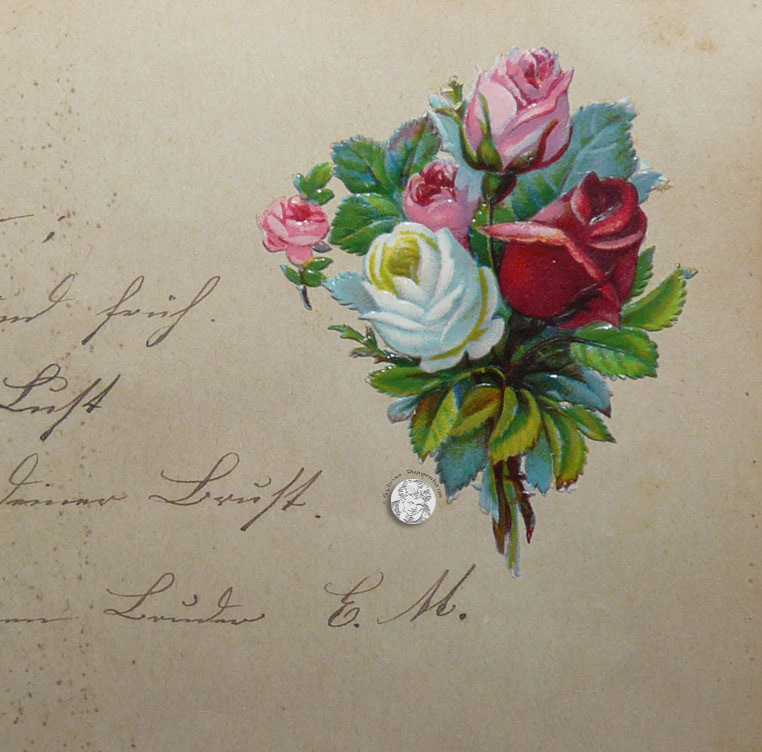 und früh.
Lust
deiner Brust.
Bruder E. M.